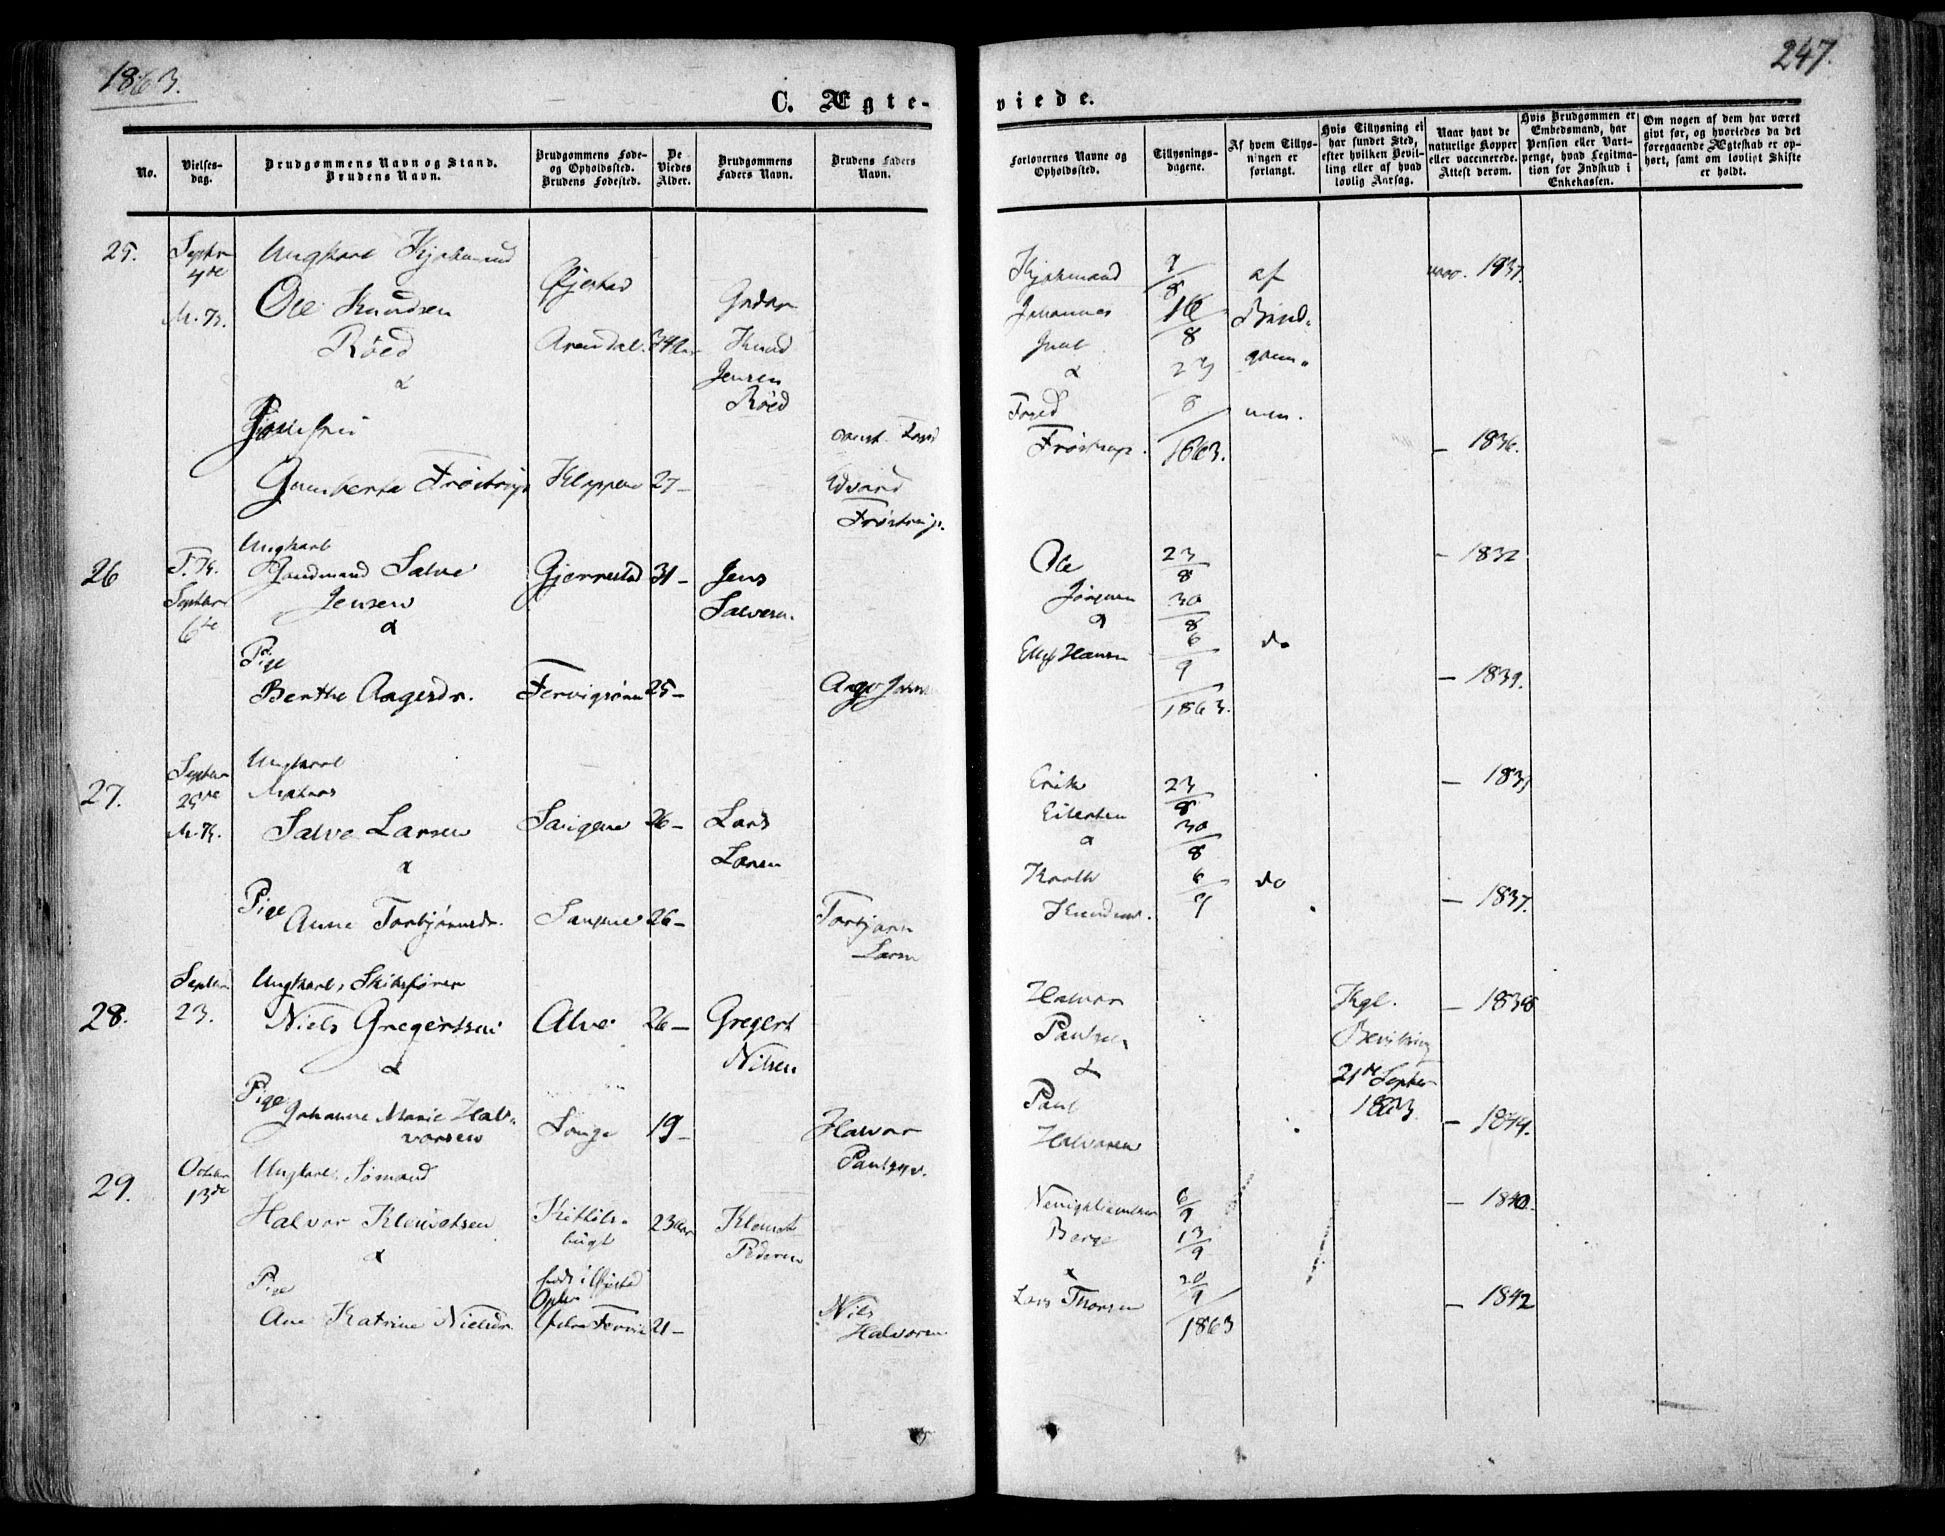 1863.
247.
C. Ægteviede.
No.
Vielsesdag.
Brudgommens Navn og Stand.
Brudens Navn.
Brudgommens Føde-
og Opholdssted.
Brudens Fødested.
De
Viedes
Alder.
Brudgommens
Faders Navn.
Brudens Faders
Navn.
Forlovernes Navne og
Opholdssted.
Tillysnings-
dagene.
Af hvem Tillys-
ningen er
forlangt.
Hvis Tillysning ei
har fundet Sted,
efter hvilken Bevil-
ling eller af hvad
lovlig Aarsag.
Naar havt de
naturlige Kopper
eller vaccinerede.
Attest derom.
Hvis Brudgommen er
Embedsmand, har
Pension eller Vart-
penge, hvad Legitima-
tion for Indskud i
Enkekassen.
Om nogen af dem har været
givt før, og hvorledes da det
foregaaende Ægteskab er op-
hørt, samt om lovligt Skifte
er holdt.
25.
Septbr
4de
M. K.
Ungkarl
Ole Knudsen
Røed
&
Øjestad
Arendal.
34 Aar
Knud
Jensen
Røed
Johannes
&
9/8
16/8
23/8
1863.
af
Brud-
gom-
men.
1837.
Frøstrup
27 –
Edvard
Frøstrup.
Frøstrup.
– 1836.
26
T. K.
Septbr
6te
Ungkarl
Salve
Jensen
&
Gjerrestad
31 –
Jens
Salvesen.
Ole
Jørgensen
&
23/8
30/8
6/9
1863.
do
– 1832
Pige
Berthe Aagesdr.
25 –
Hansen
– 1839.
27.
Septbr
25de
M. K.
Ungkarl
Salve Larsen
&
26 –
Lars
Larsen
Erik
Eilertsen
&
23/8
30/8
6/9
do
Pige Anne Torbjørnsdr.
26 –
Torbjørn
Larsen
Knudsen.
– 1837.
28.
Septbr
23.
Ungkarl, Skibsfører
Niels Gregertsen
&
Alve
26 –
Gregert
Nilsen
Halvor
Paulsen
&
Kgl.
Bevilling
21de Septbr
1863.
– 1838
Pige Johanne Marie Hal-
vorsen
Songe
19 –
Halvor
Paulsen.
Paul
Halvorsen
– 1844.
29.
Octbr
13de
Ungkarl, Sømand
Halvor Klemetsen
&
Kittels-
bugt
23 Aar
Klemet
Pedersen
Berge
&
6/9
13/9
20/9
1863
– 1840.
Pige
Ane Katrine Nielsdr.
født i Øiestad
21 –
Nils
Halvorsen
Lars Thorsen
– 1842